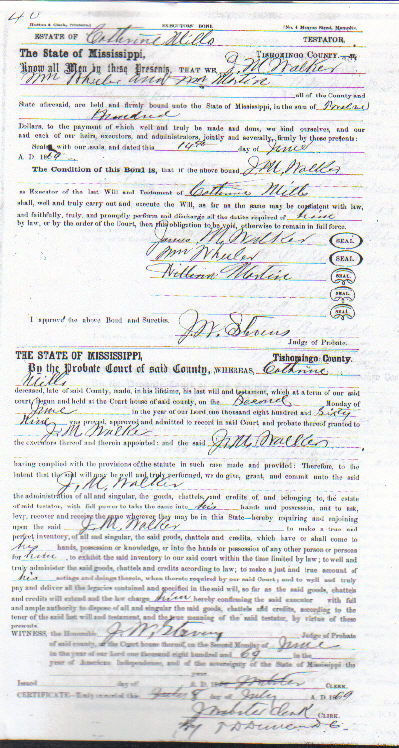 40
EXECUTORS BOND
ESTATE OF Cathrine Mills TESTATOR.
The State of Mississippi, TISHOMINGO COUNTY
Know all Men by these Presents, THAT WE J. M. Walker
Wm Wheeler and Wm Martin
all of the County and
State aforesaid, are held and firmly bound unto the State of Mississippi, in the sum of
Hundred
Dollars, to the payment of which well and truly be made and done, we bind ourselves, and our
and each of our heirs, executors, and administrators, jointly and severally, firmly by these presents:
Sealed with our seals, and dated this 14th day of June
A. D. 1869
The Condition of this Bond is, that if the above bound J. M. Walker
as Executor of the last Will and Testament of Cathrine Mills
shall, well and truly carry out and execute the Will, as far as the same may be consistent with law,
and faithfully, truly, and promptly perform and discharge all the duties required of him
by law, or by the order of the Court, then this obligation to be void, otherwise to remain in full force.
James M. Walker SEAL
Wm Wheeler SEAL
William Martin SEAL
SEAL
SEAL
I approve the above Bond and Sureties.
J. W.
Judge of Probate.
THE STATE OF MISSISSIPPI, Tishomingo County.
By the Probate Court of said County, WHEREAS, Cathrine
Mills
deceased, late of said County, made, in his lifetime, his last will and testament, which at a term of our said
court, begun and held at the Court house of said county, on the Second Monday of
June in the year of our Lord one thousand eight hundred and Sixty
Nine was proved, approved and admitted to record in said Court, and probate thereof granted to
J. M. Walker
the executors thereof and therein appointed: and the said J. M. Walker
having complied with the provisions of the statute in such case made and provided: Therefore, to the
intent that the said will may be well and truly performed, we do give, grant, and commit unto the said
J. M. Walker
the administration of all and singular, the goods, chattels and credits of, and belonging to, the estate
of said testator, with full power to take the same into his hands and possession, and to ask,
levy, recover and receive the same wherever they may be in this State—hereby requiring and enjoining
upon the said J. M. Walker to make a true and
perfect inventory, of all and singular, the said goods, chattels and credits, which have or shall come to
his hands, possession or knowledge, or into the hands or possession of any other person or persons
for him, or exhibit the said inventory to our said court within the time limited by law; to well and
truly administer the said goods, chattels and credits according to law; to make a just and true account of
his actings and doings therein, when thereto required by our said Court; and to well and truly
pay and deliver all the legacies contained and specified in the said will, so far as the said goods, chattels
and credits will extend and the law charge him hereby confirming the said executor with full
and ample authority to dispose of all and singular the said goods, chattels and credits, according to the
tenor of the said last will and testament, and the true meaning of the said testator, by virtue of these
presents.
WITNESS, the Honorable J. W. Judge of Probate
of said county, at the Court house thereof, on the Second Monday of June
in the year of our Lord one thousand eight hundred and 69 in the
year of American Independence, and of the sovereignty of the State of Mississippi the
year.
Issued day of A. D. 18 CLERK.
CERTIFICATE day of July A. D. 1869
Clerk CLERK.
By T. D. Duncan D. C.